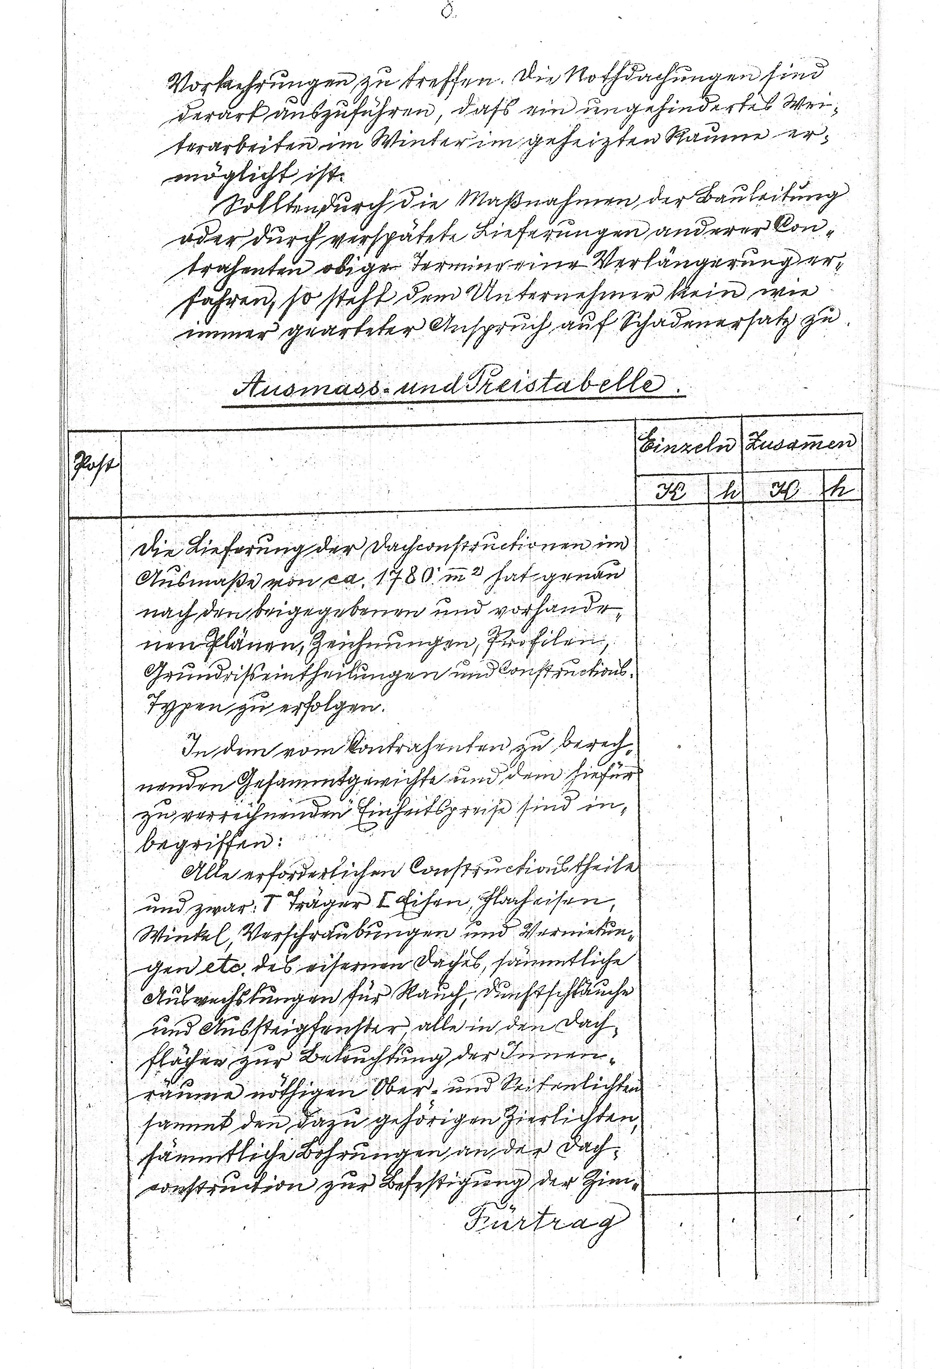 8.
Vorkehrungen zu treffen. Die Nothdachungen sind
derart auszuführen, daß ein ungehindertes Wei-
terarbeiten im Winter im geheizten Raume er-
möglicht ist.
Sollten durch die Maßnahmen der Bauleitung
oder durch verspätete Lieferungen anderer Con-
trahenten obige Termine eine Verlängerung er-
fahren, so steht dem Unternehmer kein wie
immer gearteter Anspruch auf Schadenersatz zu.
Ausmass- und Preistabelle.
Post
Einzeln Zusam̄en
K h K h
Die Lieferung der Dachconstructionen im
Ausmaße von ca. 1780 m² hat genau
nach den beigegebenen und vorhande-
nen Plänen, Zeichnungen, Profilen,
Grundrisseintheilungen und Constructions-
Typen zu erfolgen.
In dem vom Contrahenten zu berech-
nenden Gesammtgewichte und dem hiefür
zu verrechnenden Einheitspreise sind in-
begriffen:
Alle erforderlichen Constructionstheile
und zwar: I Träger [ Eisen, Flacheisen,
Winkel, Verschraubungen und Vernietun-
gen etc. des eisernen Daches, sämmtliche
Auswechslungen für Rauch, Dunstschläuche
und Aussteigfenster, alle in den Dach-
flächen zur Beleuchtung der Innen-
räume nöthigen Ober- und Seitenlichten
sammt den dazu gehörigen Zierlichten,
sämmtliche Bohrungen an der Dach-
construction zur Befestigung der Zim-
Fürtrag